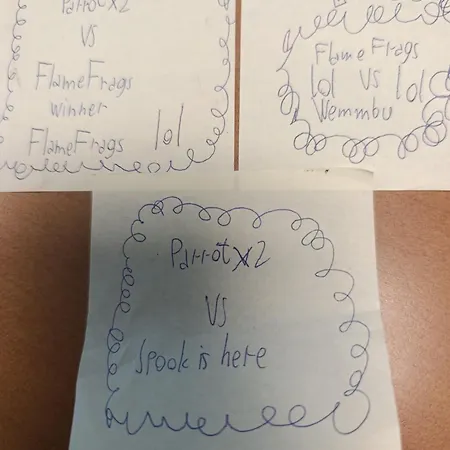 Parrotx2
VS
FlameFrags
winner
FlameFrags lol
FlameFrags
lol VS lol
Wemmbu
Parrotx2
VS
Spook is here